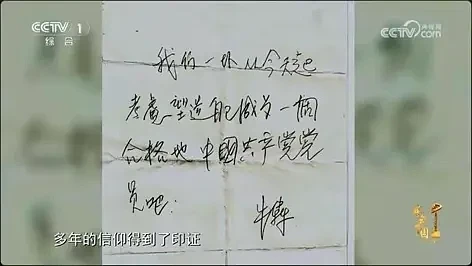 CCTV 1
综合
CCTV 央视网
com
我们一切从今天起
考慮塑造能做为一個
合格地中國共产党党
员吧!
牛犇
多年的信仰得到了印证